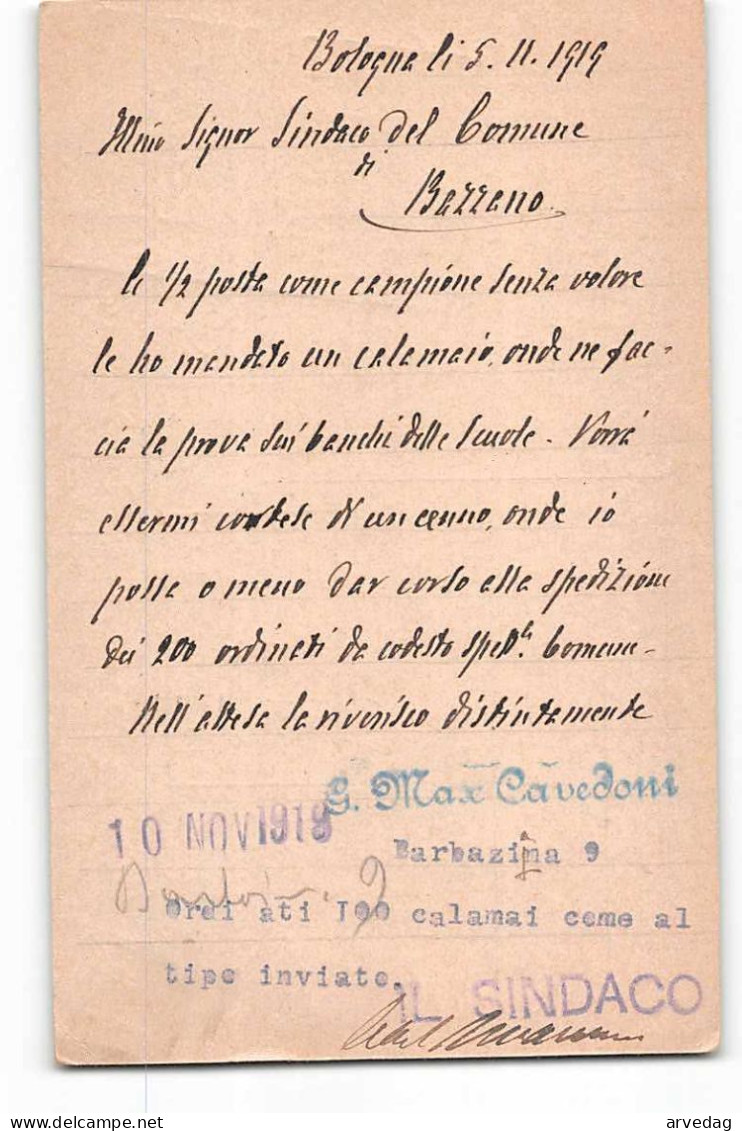 Bologna li 5. 11. 1919
Illmo Signor Sindaco del Comune
di
Bazzano.
A 1/2 posta come campione senza valore
le ho mandato un calamaio, onde ne fac-
cia la prova sui banchi delle Scuole. Vorrà
essermi cortese di un cenno, onde io
possa o meno dar corso alla spedizione
dei 200 ordinati da codesto spett.le Comune-
Nell'attesa la riverisco distintamente
G. Max Cavedoni
10 NOV 1919
Barbazina 9
9
Ordi ati 100 calamai come al
tipo inviato.
IL SINDACO
delcampe.net
arvedag